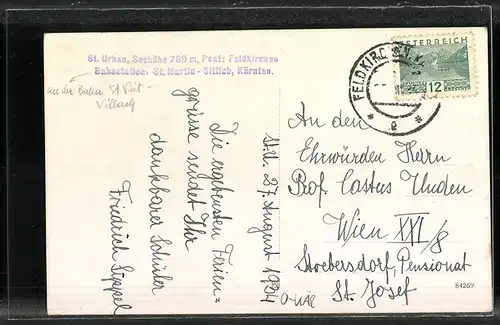 St. Urban, Seehöhe 780 m, Post: Feldkirchen
Bahnstation St. Martin - Sittich, Kärnten.
an der Bahn St Veit -
Villach
Std. 27. August 1934
Die ergebensten Ferien=
grüsse sendet Ihr
dankbarer Schüler
Friedrich Lippel
FELDKIRCHEN
e
ÖSTERREICH
12
GROSCHEN
An den
Ehrwürden Herrn
Prof. Castus Unden
Wien XXI/8
Stoebersdorf, Pensionat
St. Josef
84269